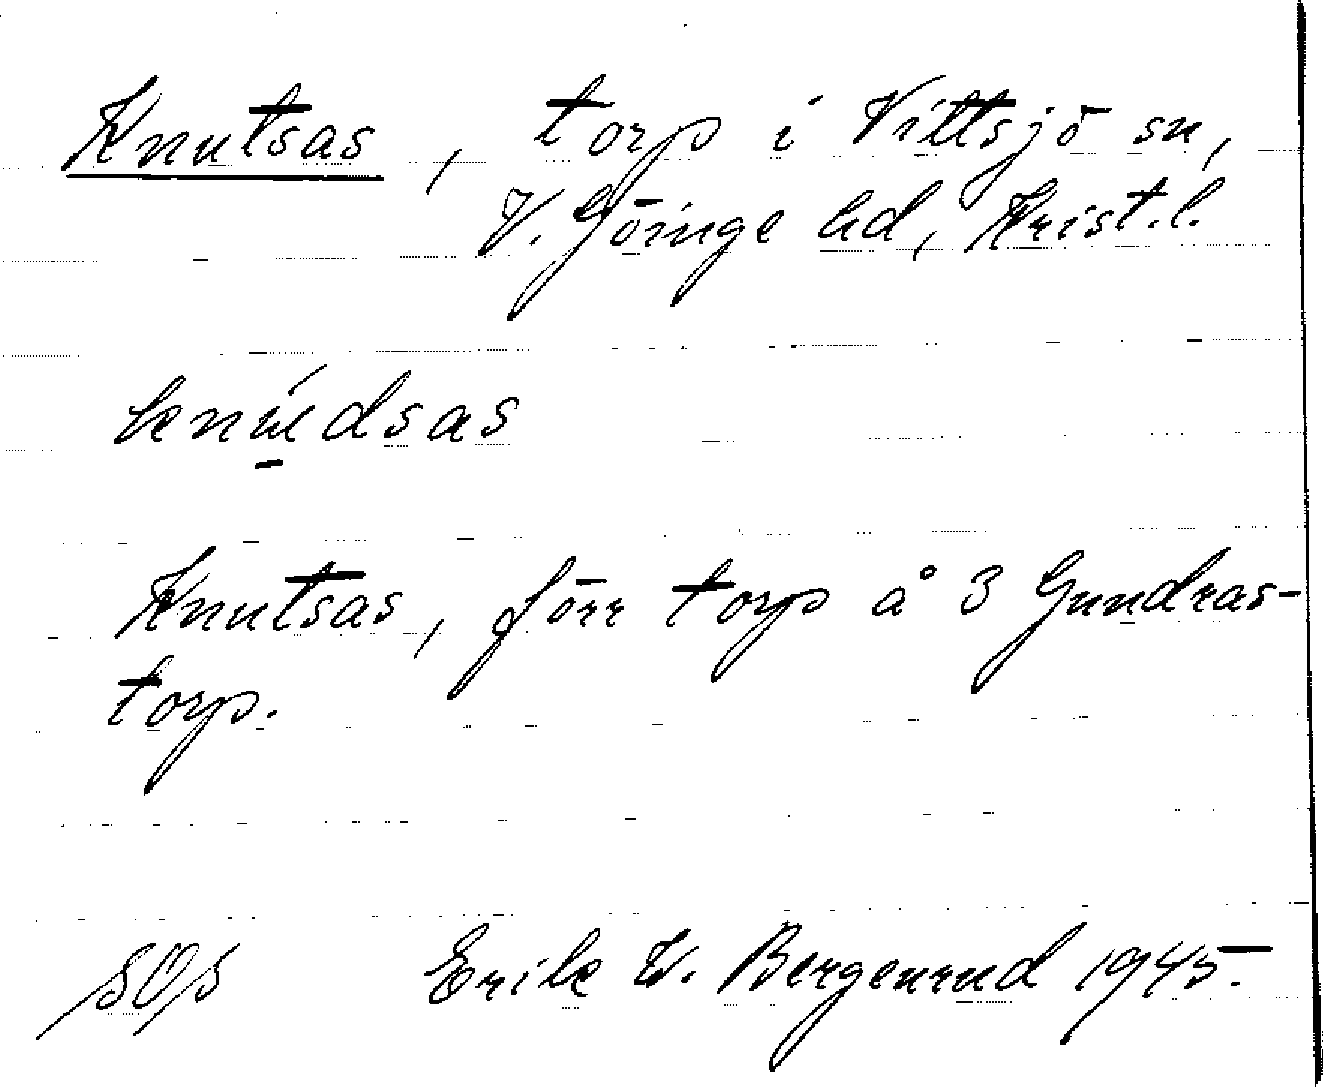 Knutsas, torp i Vittsjö sn,
V. Göinge hd, Krist.l.
knúdsas
Knutsas, förr torp å 3 Gundras-
torp.
Erik W. Bergenrud 1945.